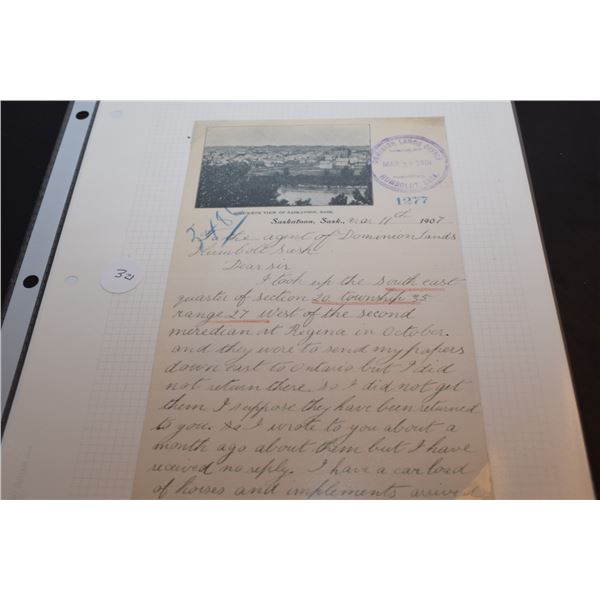 DOMINION LANDS OFFICE
HUMBOLDT, SASK.
1277
VIEW OF SASKATOON, SASK.
Saskatoon, Sask., Mar 11th 1907
To the agent of Dominion Lands
Humbolt Sask
Dear sir
I took up the South east
quarter of section 20 township 35
range 27 West of the second
meredian at Regena in October.
and they were to send my papers
down east to Ontario but I did
not return there. so I did not get
them. I suppose they have been returned
to you. So I wrote to you about a
month ago about them but I have
received no reply. I have a car load
of horses and implements arrived